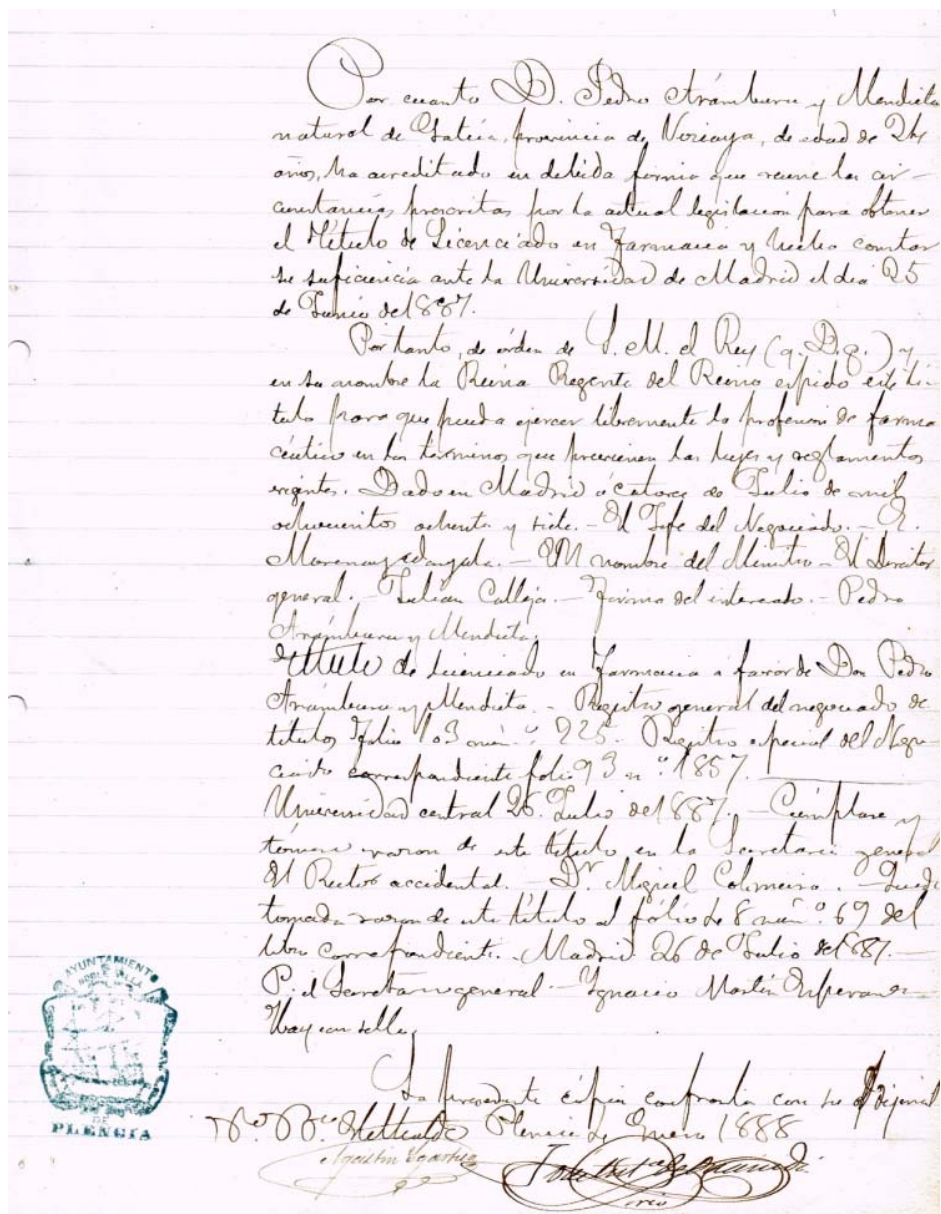 Por cuanto D. Pedro Arámburu y Mendieta
natural de Gatica, provincia de Vizcaya, de edad de 24
años, ha acreditado en debida forma que reune las cir-
cunstancias prescritas por la actual legislacion para obtener
el Título de Licenciado en Farmacia y hecho constar
su suficiencia ante la Universidad de Madrid el dia 25
de Junio de 1887.
Por tanto, de órden de S. M. el Rey (q. D. g.) y
en su nombre la Reina Regente del Reino expido este tí-
tulo para que pueda ejercer libremente la profesion de farma
céutico en los términos que previenen las leyes y reglamentos
vigentes. Dado en Madrid á catorce de Julio de mil
ochocientos ochenta y siete. - El Jefe del Negociado. -
nombre del Ministro - El Director
general. - Julian Calleja. - Firma del interesado. - Pedro
Arámburu y Mendieta.
Título de Licenciado en Farmacia á favor de Don Pedro
Arámburu y Mendieta. - Registro general del negociado de
títulos folio 103 núm.º 925. Registro especial del Nego-
ciado correspondiente folio 93 n.º 1857.
Universidad central 26 Julio de 1887. - Cúmplase y
tómese razon de este título en la Secretaria general
El Rector accidental. - Dr. Miguel Colmeiro. - Queda
tomada razon de este título al fólio 69 del
libro correspondiente. - Madrid 26 de Julio de 1887. -
P. el Secretario general - Ignacio Martín
Hay un sello
La precedente cópia confronta con su original
Vº Bº El Alcalde Plencia de Enero 1888
Agustin
AYUNTAMIENTO
NOBLE VILLA
DE
PLENCIA